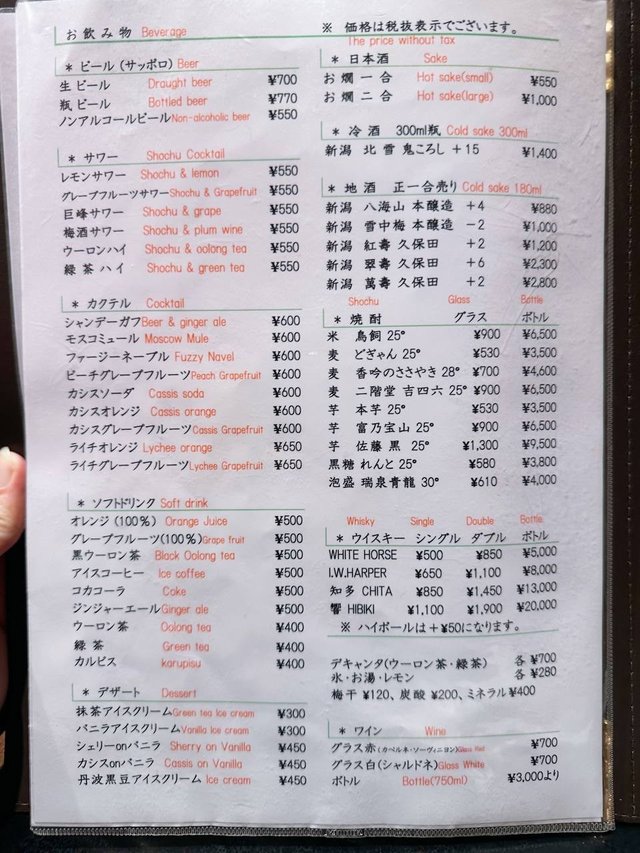 お飲み物 Beverage
※ 価格は税抜表示でございます。
The price without tax
* ビール (サッポロ) Beer
生ビール Draught beer ¥700
瓶ビール Bottled beer ¥770
ノンアルコールビール Non-alcoholic beer ¥550
* サワー Shochu Cocktail
レモンサワー Shochu & lemon ¥550
グレープフルーツサワー Shochu & Grapefruit ¥550
巨峰サワー Shochu & grape ¥550
梅酒サワー Shochu & plum wine ¥550
ウーロンハイ Shochu & oolong tea ¥550
緑茶ハイ Shochu & green tea ¥550
* カクテル Cocktail
シャンデーガフ Beer & ginger ale ¥600
モスコミュール Moscow Mule ¥600
ファージーネーブル Fuzzy Navel ¥600
ピーチグレープフルーツ Peach Grapefruit ¥600
カシスソーダ Cassis soda ¥600
カシスオレンジ Cassis orange ¥600
カシスグレープフルーツ Cassis Grapefruit ¥600
ライチオレンジ Lychee orange ¥650
ライチグレープフルーツ Lychee Grapefruit ¥650
* ソフトドリンク Soft drink
オレンジ (100%) Orange Juice ¥500
グレープフルーツ(100%) Grape fruit ¥500
黒ウーロン茶 Black Oolong tea ¥500
アイスコーヒー Ice coffee ¥500
コカコーラ Coke ¥500
ジンジャーエール Ginger ale ¥500
ウーロン茶 Oolong tea ¥400
緑茶 Green tea ¥400
カルピス karupisu ¥400
* デザート Dessert
抹茶アイスクリーム Green tea Ice cream ¥300
バニラアイスクリーム Vanilla Ice cream ¥300
シェリーonバニラ Sherry on Vanilla ¥450
カシスonバニラ Cassis on Vanilla ¥450
丹波黒豆アイスクリーム Ice cream ¥450
* 日本酒 Sake
お燗一合 Hot sake(small) ¥550
お燗二合 Hot sake(large) ¥1,000
* 冷酒 300ml瓶 Cold sake 300ml
新潟 北雪 鬼ころし +15 ¥1,400
* 地酒 正一合売り Cold sake 180ml
新潟 八海山 本醸造 +4 ¥880
新潟 雪中梅 本醸造 -2 ¥1,000
新潟 紅壽 久保田 +2 ¥1,200
新潟 翠壽 久保田 +6 ¥2,300
新潟 萬壽 久保田 +2 ¥2,800
Shochu Glass Bottle
* 焼酎 グラス ボトル
米 鳥飼 25° ¥900 ¥6,500
麦 どぎゃん 25° ¥530 ¥3,500
麦 香吟のささやき 28° ¥700 ¥4,600
麦 二階堂 吉四六 25° ¥900 ¥6,500
芋 本芋 25° ¥530 ¥3,500
芋 富乃宝山 25° ¥900 ¥6,500
芋 佐藤 黒 25° ¥1,300 ¥9,500
黒糖 れんと 25° ¥580 ¥3,800
泡盛 瑞泉青龍 30° ¥610 ¥4,000
Whisky Single Double Bottle
* ウイスキー シングル ダブル ボトル
WHITE HORSE ¥500 ¥850 ¥5,000
I.W.HARPER ¥650 ¥1,100 ¥8,000
知多 CHITA ¥850 ¥1,450 ¥13,000
響 HIBIKI ¥1,100 ¥1,900 ¥20,000
※ ハイボールは+¥50になります。
デキャンタ(ウーロン茶・緑茶) 各 ¥700
氷・お湯・レモン 各 ¥280
梅干 ¥120、炭酸 ¥200、ミネラル ¥400
* ワイン Wine
グラス赤(カベルネ・ソーヴィニヨン) Glass Red ¥700
グラス白(シャルドネ) Glass White ¥700
ボトル Bottle(750ml) ¥3,000より